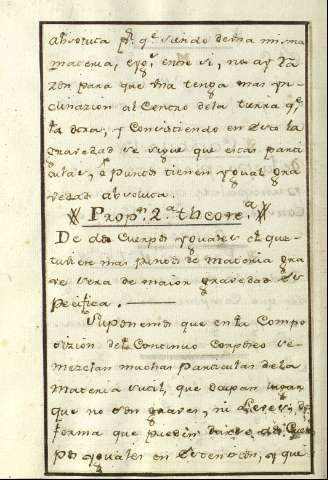 absoluta pr. qe. siendo de vna misma
materia, e ygs. entre si, no ay Ra
zon para que vna tenga mas yn
clinazion al Centro dela tierra qe.
la otra, y Consistiendo en esto la
gravedad se sigue que estas parti
culas, o puntos tienen ygual gra
vedad absoluta.
Propn. 2.a theore.a
De dos Cuerpos yguales el que
tuviere mas puntos de materia gra
ve sera de maior gravedad es
pecifica.
Suponemos que en la Compo
sizion del Continuo Corporeo se
mezclan muchas particulas dela
materia sutil, que ocupan lugar
que no son graves, ni leves, de
forma que pueden darse dos Cuer
pos yguales en estension, y que